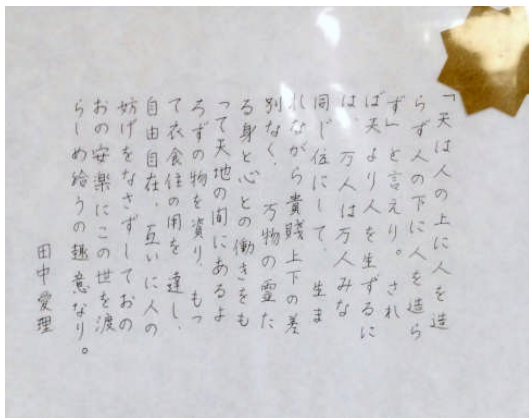 「天は人の上に人を造
らず人の下に人を造ら
ず」と言えり。され
ば天より人を生ずるに
は、万人は万人みな
同じ位にして、生ま
れながら貴賤上下の差
別なく、万物の霊た
る身と心との働きをも
って天地の間にあるよ
ろずの物を資り、もっ
て衣食住の用を達し、
自由自在、互いに人の
妨げをなさずしておの
おの安楽にこの世を渡
らしめ給うの趣意なり。
田中愛理